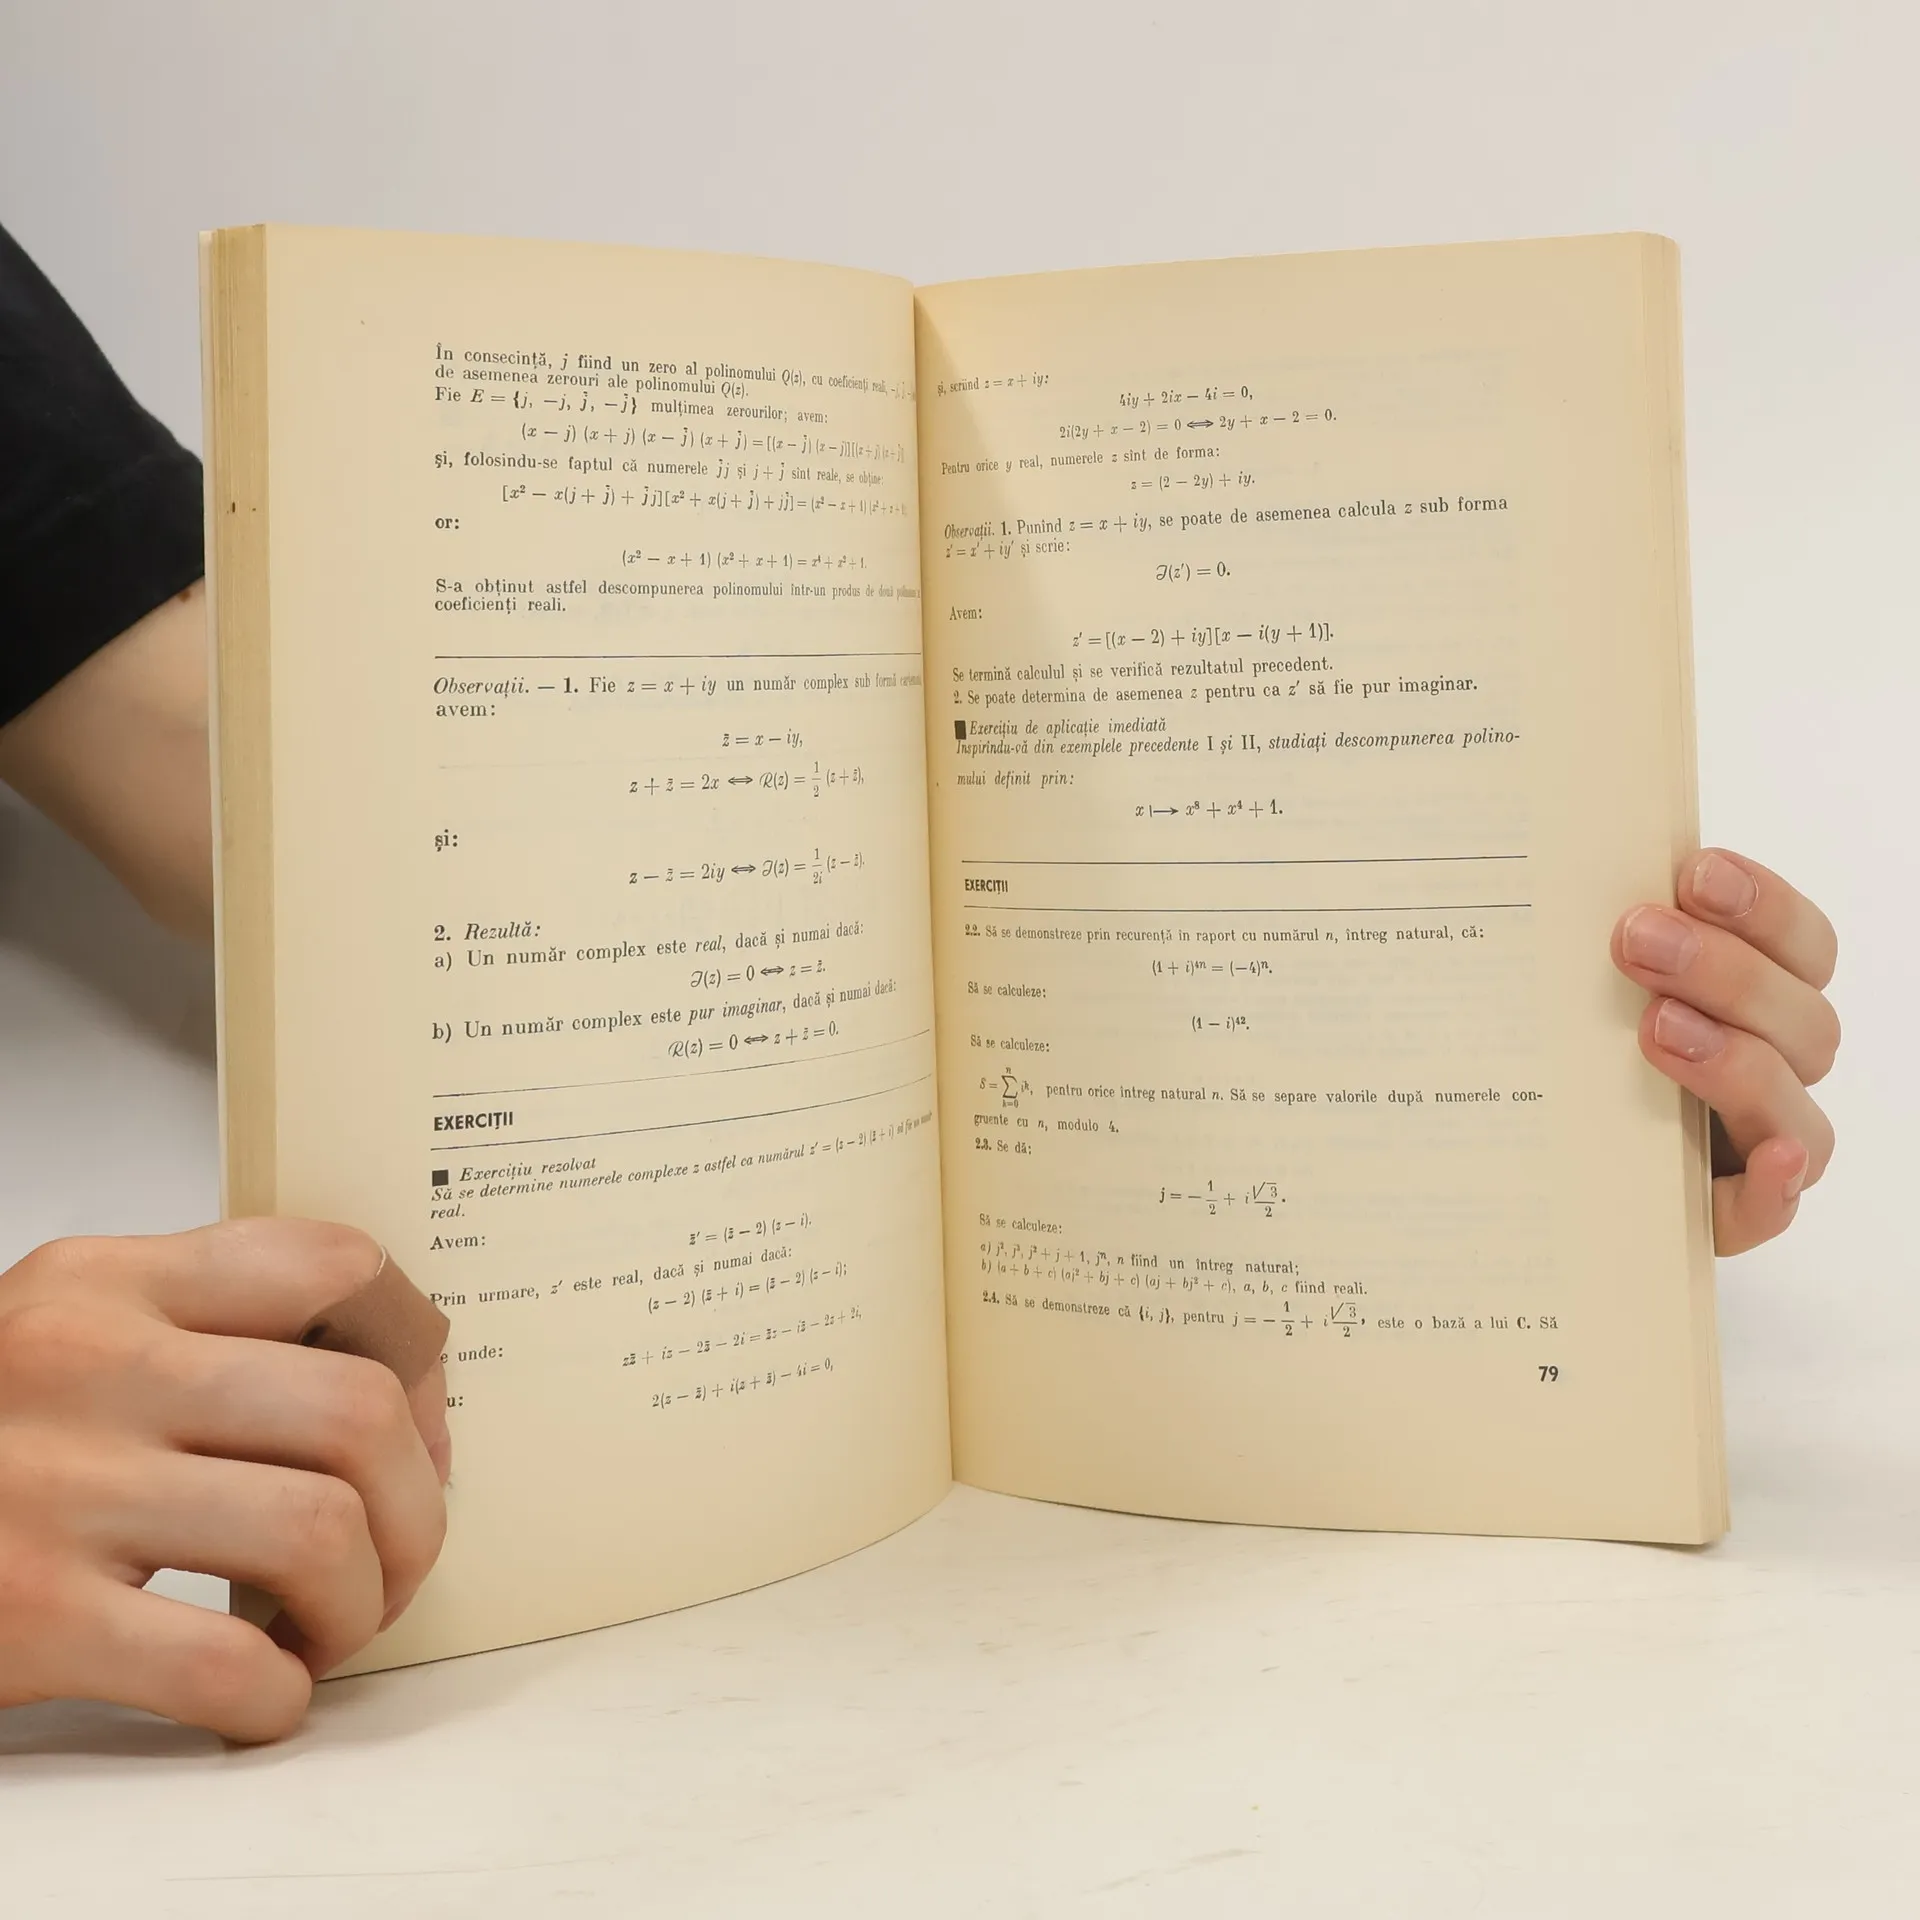 În consecință, j fiind un zero al polinomului Q(z), cu coeficienți reali,
de asemenea zerouri ale polinomului Q(z).
Fie E = {j, −j, j̄, −j̄} mulțimea zerourilor; avem:
(x − j) (x + j) (x − j̄) (x + j̄) = [(x − j) (x − j̄)][(x + j) (x + j̄)]
și, folosindu-se faptul că numerele j̄j și j + j̄ sînt reale, se obține:
[x² − x(j + j̄) + j̄j][x² + x(j + j̄) + jj̄] = (x² − x + 1) (x² + x + 1)
or:
(x² − x + 1) (x² + x + 1) = x⁴ + x² + 1.
S-a obținut astfel descompunerea polinomului într-un produs de două
coeficienți reali.
Observații. — 1. Fie z = x + iy un număr complex sub formă
avem:
z̄ = x − iy,
z + z̄ = 2x ⟺ ℛ(z) = 1/2 (z + z̄),
și:
z − z̄ = 2iy ⟺ ℐ(z) = 1/2i (z − z̄).
2. Rezultă:
a) Un număr complex este real, dacă și numai dacă:
ℐ(z) = 0 ⟺ z = z̄.
b) Un număr complex este pur imaginar, dacă și numai dacă:
ℛ(z) = 0 ⟺ z + z̄ = 0.
EXERCIȚII
■ Exercițiu rezolvat
Să se determine numerele complexe z astfel ca numărul z′ = (z − 2) (z̄ + i) să fie un
real.
Avem:
z̄′ = (z̄ − 2) (z − i).
Prin urmare, z′ este real, dacă și numai dacă:
(z − 2) (z̄ + i) = (z̄ − 2) (z − i);
unde:
zz̄ + iz − 2z̄ − 2i = z̄z − iz̄ − 2z + 2i,
2(z − z̄) + i(z + z̄) − 4i = 0,
și, scriind z = x + iy:
4iy + 2ix − 4i = 0,
2i(2y + x − 2) = 0 ⟺ 2y + x − 2 = 0.
Pentru orice y real, numerele z sînt de forma:
z = (2 − 2y) + iy.
Observații. 1. Punînd z = x + iy, se poate de asemenea calcula z sub forma
z′ = x′ + iy′ și scrie:
ℐ(z′) = 0.
Avem:
z′ = [(x − 2) + iy][x − i(y + 1)].
Se termină calculul și se verifică rezultatul precedent.
2. Se poate determina de asemenea z pentru ca z′ să fie pur imaginar.
■ Exercițiu de aplicație imediată
Inspirîndu-vă din exemplele precedente I și II, studiați descompunerea polino-
mului definit prin:
x ⟼ x⁸ + x⁴ + 1.
EXERCIȚII
2.2. Să se demonstreze prin recurență în raport cu numărul n, întreg natural, că:
(1 + i)⁴ⁿ = (−4)ⁿ.
Să se calculeze:
(1 − i)⁴².
Să se calculeze:
S = ∑ₖ₌₀ⁿ iᵏ, pentru orice întreg natural n. Să se separe valorile după numerele con-
gruente cu n, modulo 4.
2.3. Se dă:
j = − 1/2 + i √3/2.
Să se calculeze:
a) j², j³, j² + j + 1, jⁿ, n fiind un întreg natural;
b) (a + b + c) (aj² + bj + c) (aj + bj² + c), a, b, c fiind reali.
2.4. Să se demonstreze că {i, j}, pentru j = − 1/2 + i √3/2, este o bază a lui C. Să
79